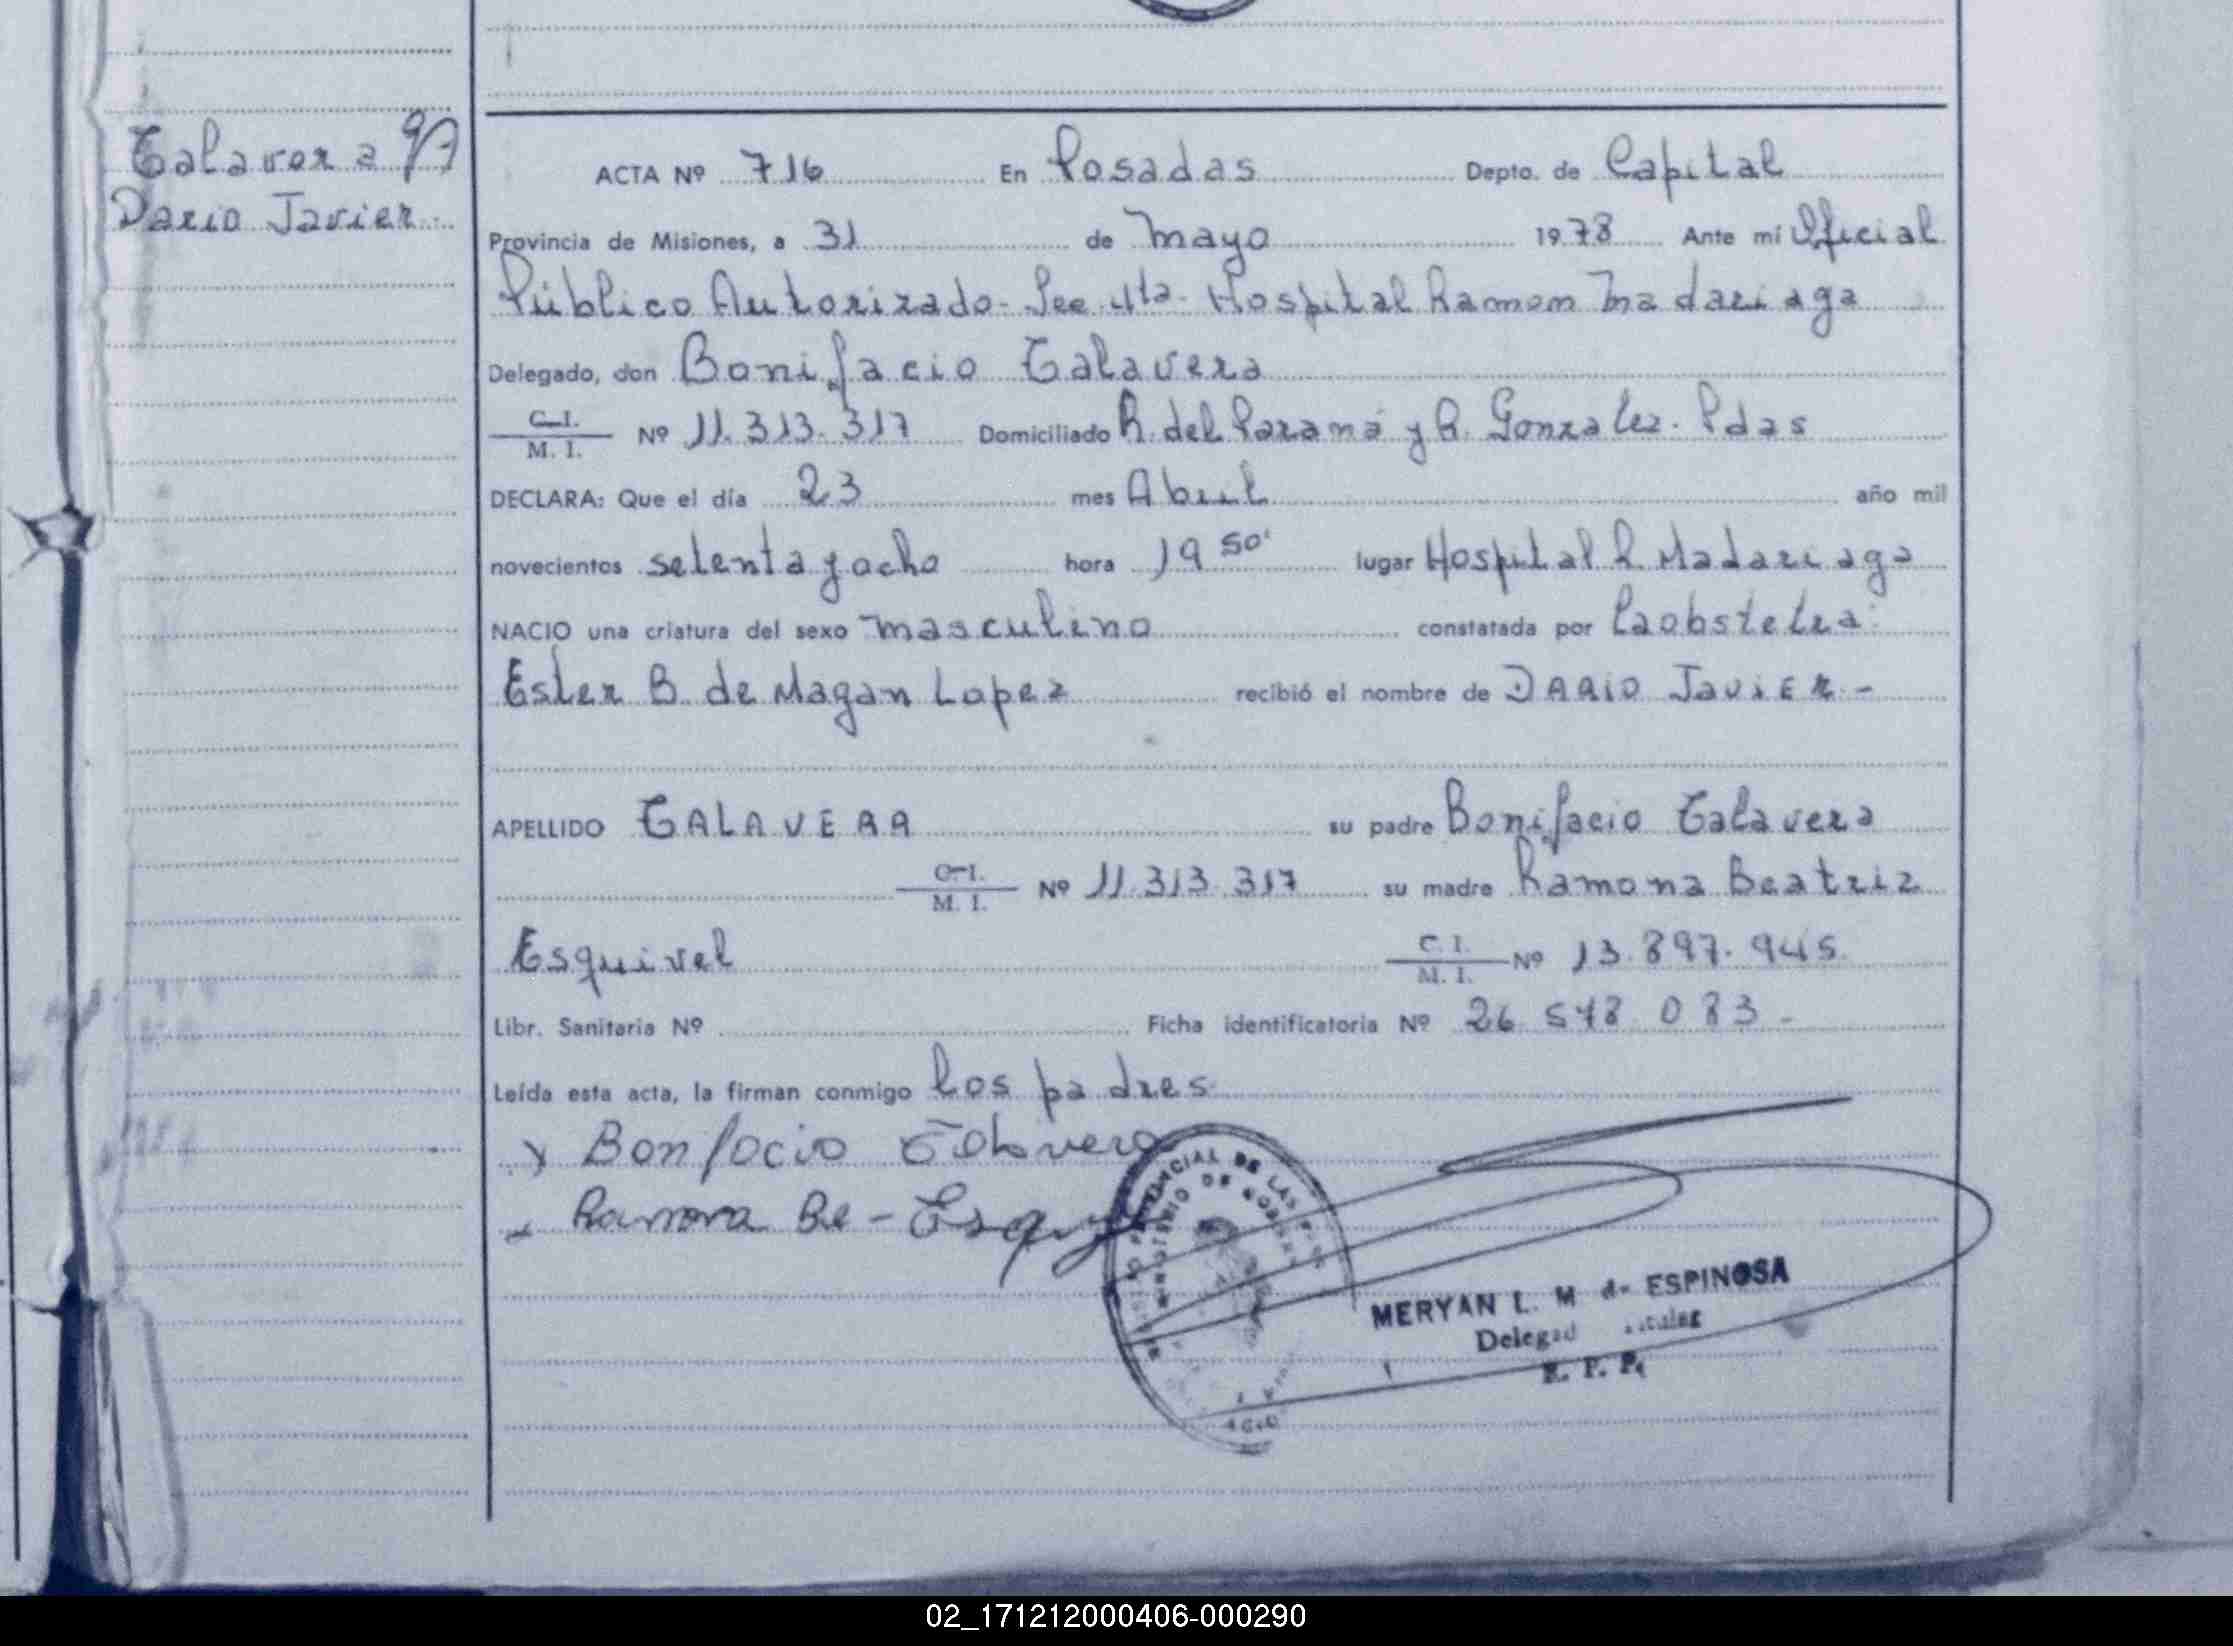 Talavera
Dario Javier
ACTA Nº 716 En Posadas Depto. de Capital
Provincia de Misiones, a 31 de Mayo 1978 Ante mí Oficial
Público Autorizado - Sec 4ta. Hospital Ramon Madariaga
Delegado, don Bonifacio Talavera
C.I.
M. I. Nº 11.313.317 Domiciliado R. del Paraná y R. Gonzalez. Pdas
DECLARA: Que el día 23 mes Abril año mil
novecientos setenta y ocho hora 19 50' lugar Hospital R. Madariaga
NACIO una criatura del sexo masculino constatada por La obstetra:
Ester B. de Magan Lopez recibió el nombre de DARIO JAVIER.-
APELLIDO TALAVERA su padre Bonifacio Talavera
C.I.
M. I. Nº 11.313.317 su madre Ramona Beatriz
Esquivel C. I.
M. I. Nº 13.897.945
Libr. Sanitaria Nº Ficha identificatoria Nº 26.548.083-
Leída esta acta, la firman conmigo los padres
Bonfacio Talavera
Ramona Be - Esqui
MERYAN L. M de ESPINOSA
02_171212000406-000290